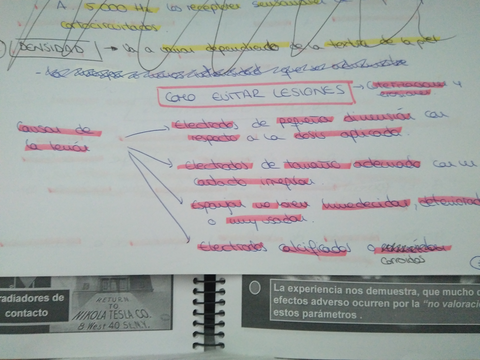 A 5.000 Hz los receptores sensoriales
cortocircuitados
DENSIDAD → Va a variar dependiendo de la textura de la piel
COMO EVITAR LESIONES
Causas de
la lesión
Electrodos de pequeña dimensión con
respecto a la dosis aplicada.
Electrodos de tamaño adecuado con un
contacto irregular
Esponjas no bien humedecidas, deterioradas
o muy usadas.
Electrodos calcificados o
corroídos
radiadores de
contacto
RETURN
TO
NIKOLA TESLA CO.
8 West 40 St. N.Y.
La experiencia nos demuestra, que mucho
efectos adverso ocurren por la "no valoració
estos parámetros .